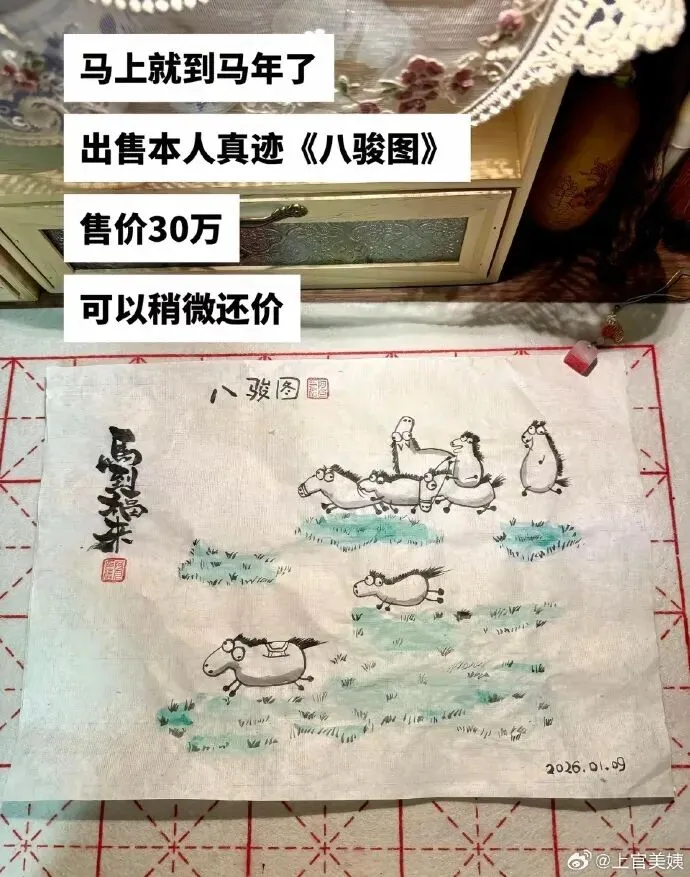 马上就到马年了
出售本人真迹《八骏图》
售价30万
可以稍微还价
八骏图
馬到福来
2026.01.09
@上官美姨